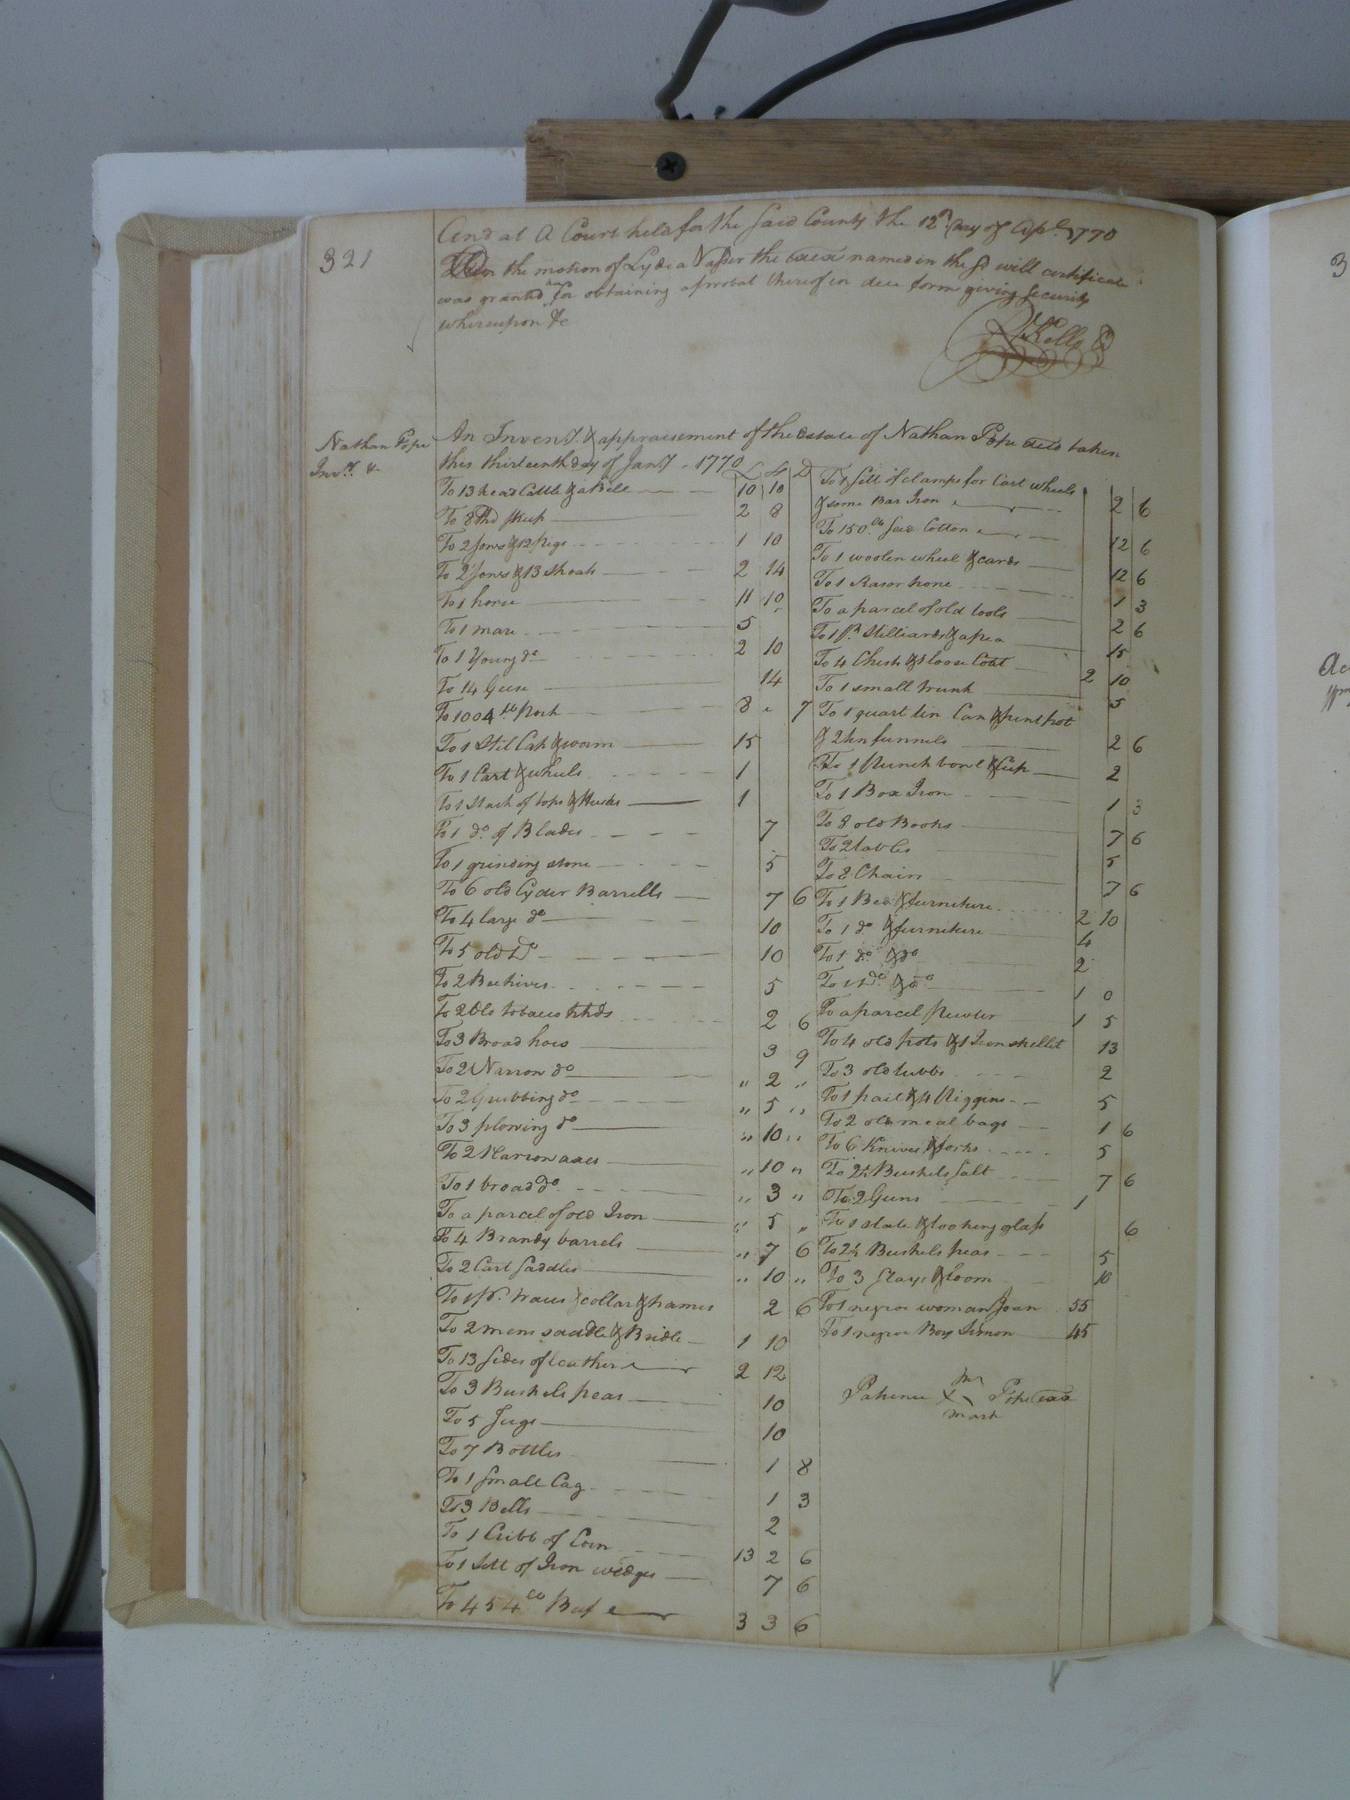 321
And at A Court held for the Said County the 12th Day of Apl. 1770
Upon the motion of Lydia the Exex named in the sd will certificate
was granted for obtaining a probat thereof in due form giving Security
whereupon &c
Kello
Nathan Pope
Invy. &
An Inveny. & appraisement of the Estate of Nathan Pope decd taken
this thirteenth day of Jany. 1770
£ S D
To 13 head Cattle & a Bell 10 10
To 8 Hd sheep 2 8
To 2 Sows & 12 pigs 1 10
To 2 Sows & 13 Shoats 2 14
To 1 horse 11 10
To 1 mare 5
To 1 Young do 2 10
To 14 Geese 14
To 1004 lb Pork 8 " 7
To 1 Still Cap & worm 15
To 1 Cart & wheels 1
To 1 Stack of tops & Husks 1
To 1 do. of Blades 7
To 1 grinding stone 5
To 6 old Cyder Barrells 7 6
To 4 large do 10
To 5 old Do 10
To 2 Beehives 5
To 2 Old tobacco hhds 2 6
To 3 Broad hoes 3 9
To 2 Narrow do " 2 "
To 2 Grubbing do " 5 "
To 3 plowing do " 10 "
To 2 Narrow axes " 10 "
To 1 broad do " 3 "
To a parcel of old Iron " 5 "
To 4 Brandy barrels " 7 6
To 2 Cart Saddles " 10 "
To 1 pr. traces & collar & hames 2 6
To 2 mens saddle & Bridle 1 10
To 13 sides of leather 2 12
To 3 Bushels peas 10
To 5 Jugs 10
To 7 Bottles 1 8
To 1 Small Cag 1 3
To 3 Bells 2
To 1 Cribb of Corn 13 2 6
To 1 Sett of Iron wedges 7 6
To 454 lb Beef 3 3 6
To 1 Sett of clamps for Cart wheels
& some Bar Iron 2 6
To 150 lb Seed Cotton 12 6
To 1 woolen wheel & cards 12 6
To 1 Rasor hone 1 3
To a parcel of old tools 2 6
To 1 pr Stilliards & a pea 15
To 4 Chests & 1 loose Coat 2 10
To 1 small trunk 5
To 1 quart tin Can & pint pot
& 2 tin funnels 2 6
To 1 Punch bowl & Cup 2
To 1 Box Iron 1 3
To 8 old Books 7 6
To 2 tables 5
To 8 Chairs 7 6
To 1 Bed & furniture 2 10
To 1 do & furniture 4
To 1 do & do 2
To 1 do & do 1 0
To a parcel pewter 1 5
To 4 old pots & 1 Iron skellet 13
To 3 old tubbs 2
To 1 pail & 4 Piggins 5
To 2 old meal bags 1 6
To 6 Knives & forks 5
To 2½ Bushels Salt 7 6
To 2 Guns 1
To 1 slate & looking glass 6
To 2½ Bushels peas 5
To 3 Slays & loom 10
To 1 negroe woman Joan 55
To 1 negroe Boy Simon 45
Patience X Pope Exx
mark